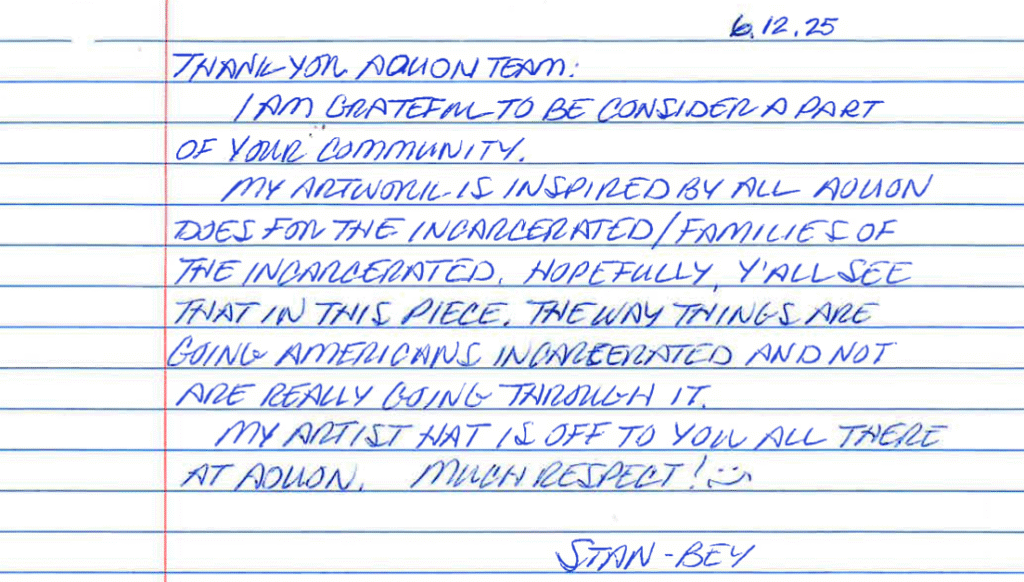 6.12.25
THANK YOU ADVON TEAM:
I AM GRATEFUL TO BE CONSIDER A PART
OF YOUR COMMUNITY.
MY ARTWORK IS INSPIRED BY ALL
DOES FOR THE INCARCERATED/FAMILIES OF
THE INCARCERATED. HOPEFULLY, Y'ALL SEE
THAT IN THIS PIECE. THE WAY THINGS ARE
GOING AMERICANS INCARCERATED AND NOT
ARE REALLY GOING THROUGH IT.
MY ARTIST HAT IS OFF TO YOU ALL THERE
AT. MUCH RESPECT! :)
STAN-BEY